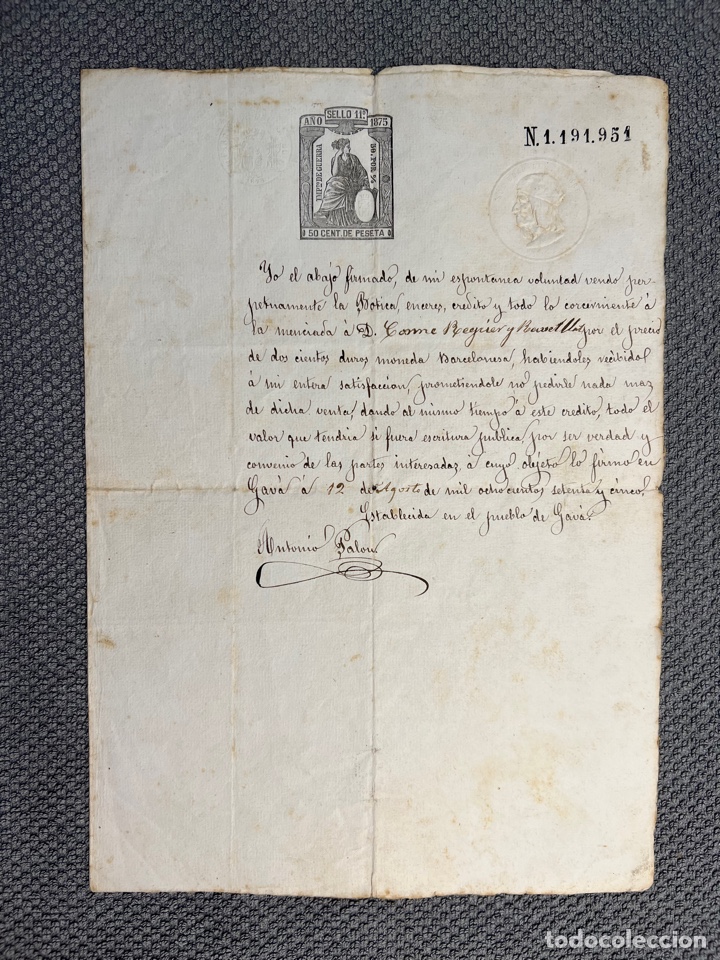 SELLO 11º
AÑO 1875
IMPTO DE GUERRA
50 POR %
50 CENT. DE PESETA
N.1.191.951
Yo el abajo firmado, de mi espontanea voluntad vendo per-
petuamente la Botica, enceres, credito y todo lo concerniente á
la menciada á D. Cosme Reguer y por el precio
de dos cientos duros moneda Barcelonesa, habiendoles recibido
á mi entera satisfaccion, prometiendole no pedirle nada maz
de dicha venta, dando al mismo tiempo á este credito, todo el
valor que tendria si fuera escritura publica, por ser verdad y
convenio de las partes interesadas, a cuyo objeto lo firmo en
Gavá á 12 de Agosto de mil ochocientos setenta y cinco.
Establecida en el pueblo de Gavá.
Antonio Palou
todocoleccion.net